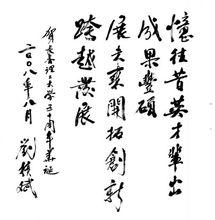 憶往昔英才輩出
成果豐碩
展未來開拓創新
跨越發展
賀長春理工大學五十周年華誕
二〇〇八年八月
劉